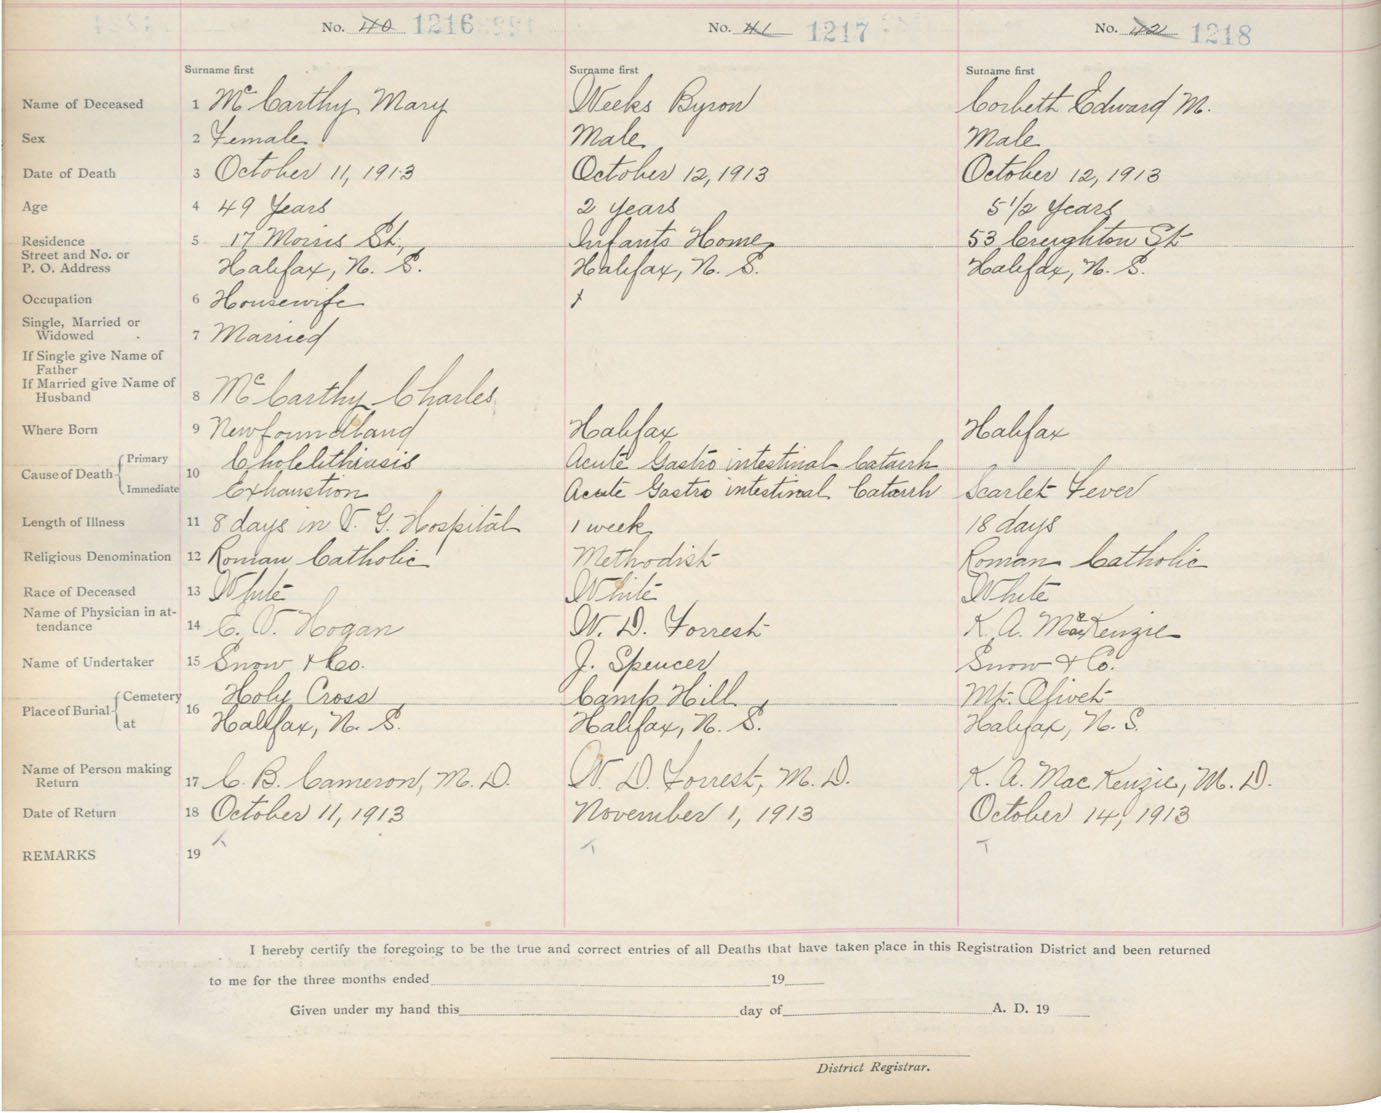 No. 40 1216 No. 41 1217 No. 42 1218
Surname first Surname first Surname first
Name of Deceased 1 McCarthy Mary Weeks Byron Corbeth Edward M.
Sex 2 Female Male Male
Date of Death 3 October 11, 1913 October 12, 1913 October 12, 1913
Age 4 49 Years 2 years 5 1/2 Years
Residence 5 17 Morris St., Infants Home, 53 Creighton St
Street and No. or
P. O. Address Halifax, N. S. Halifax, N. S. Halifax, N. S.
Occupation 6 Housewife x
Single, Married or
Widowed 7 Married
If Single give Name of
Father
If Married give Name of
Husband 8 McCarthy Charles
Where Born 9 Newfoundland Halifax Halifax
Cause of Death Primary 10 Cholelithiasis Acute Gastro intestinal Catarrh
Immediate Exhaustion Acute Gastro intestinal Catarrh Scarlet Fever
Length of Illness 11 8 days in V. G. Hospital 1 week 18 days
Religious Denomination 12 Roman Catholic Methodist Roman Catholic
Race of Deceased 13 White White White
Name of Physician in at-
tendance 14 E. V. Hogan W. D. Forrest K. A. MacKenzie
Name of Undertaker 15 Snow & Co. J. Spencer Snow & Co.
Place of Burial Cemetery 16 Holy Cross Camp Hill Mt. Olivet
at Halifax, N. S. Halifax, N. S. Halifax, N. S.
Name of Person making
Return 17 C. B. Cameron, M. D. W. D. Forrest, M. D. K. A. MacKenzie, M. D.
Date of Return 18 October 11, 1913 November 1, 1913 October 14, 1913
REMARKS 19
I hereby certify the foregoing to be the true and correct entries of all Deaths that have taken place in this Registration District and been returned
to me for the three months ended 19
Given under my hand this day of A. D. 19
District Registrar.